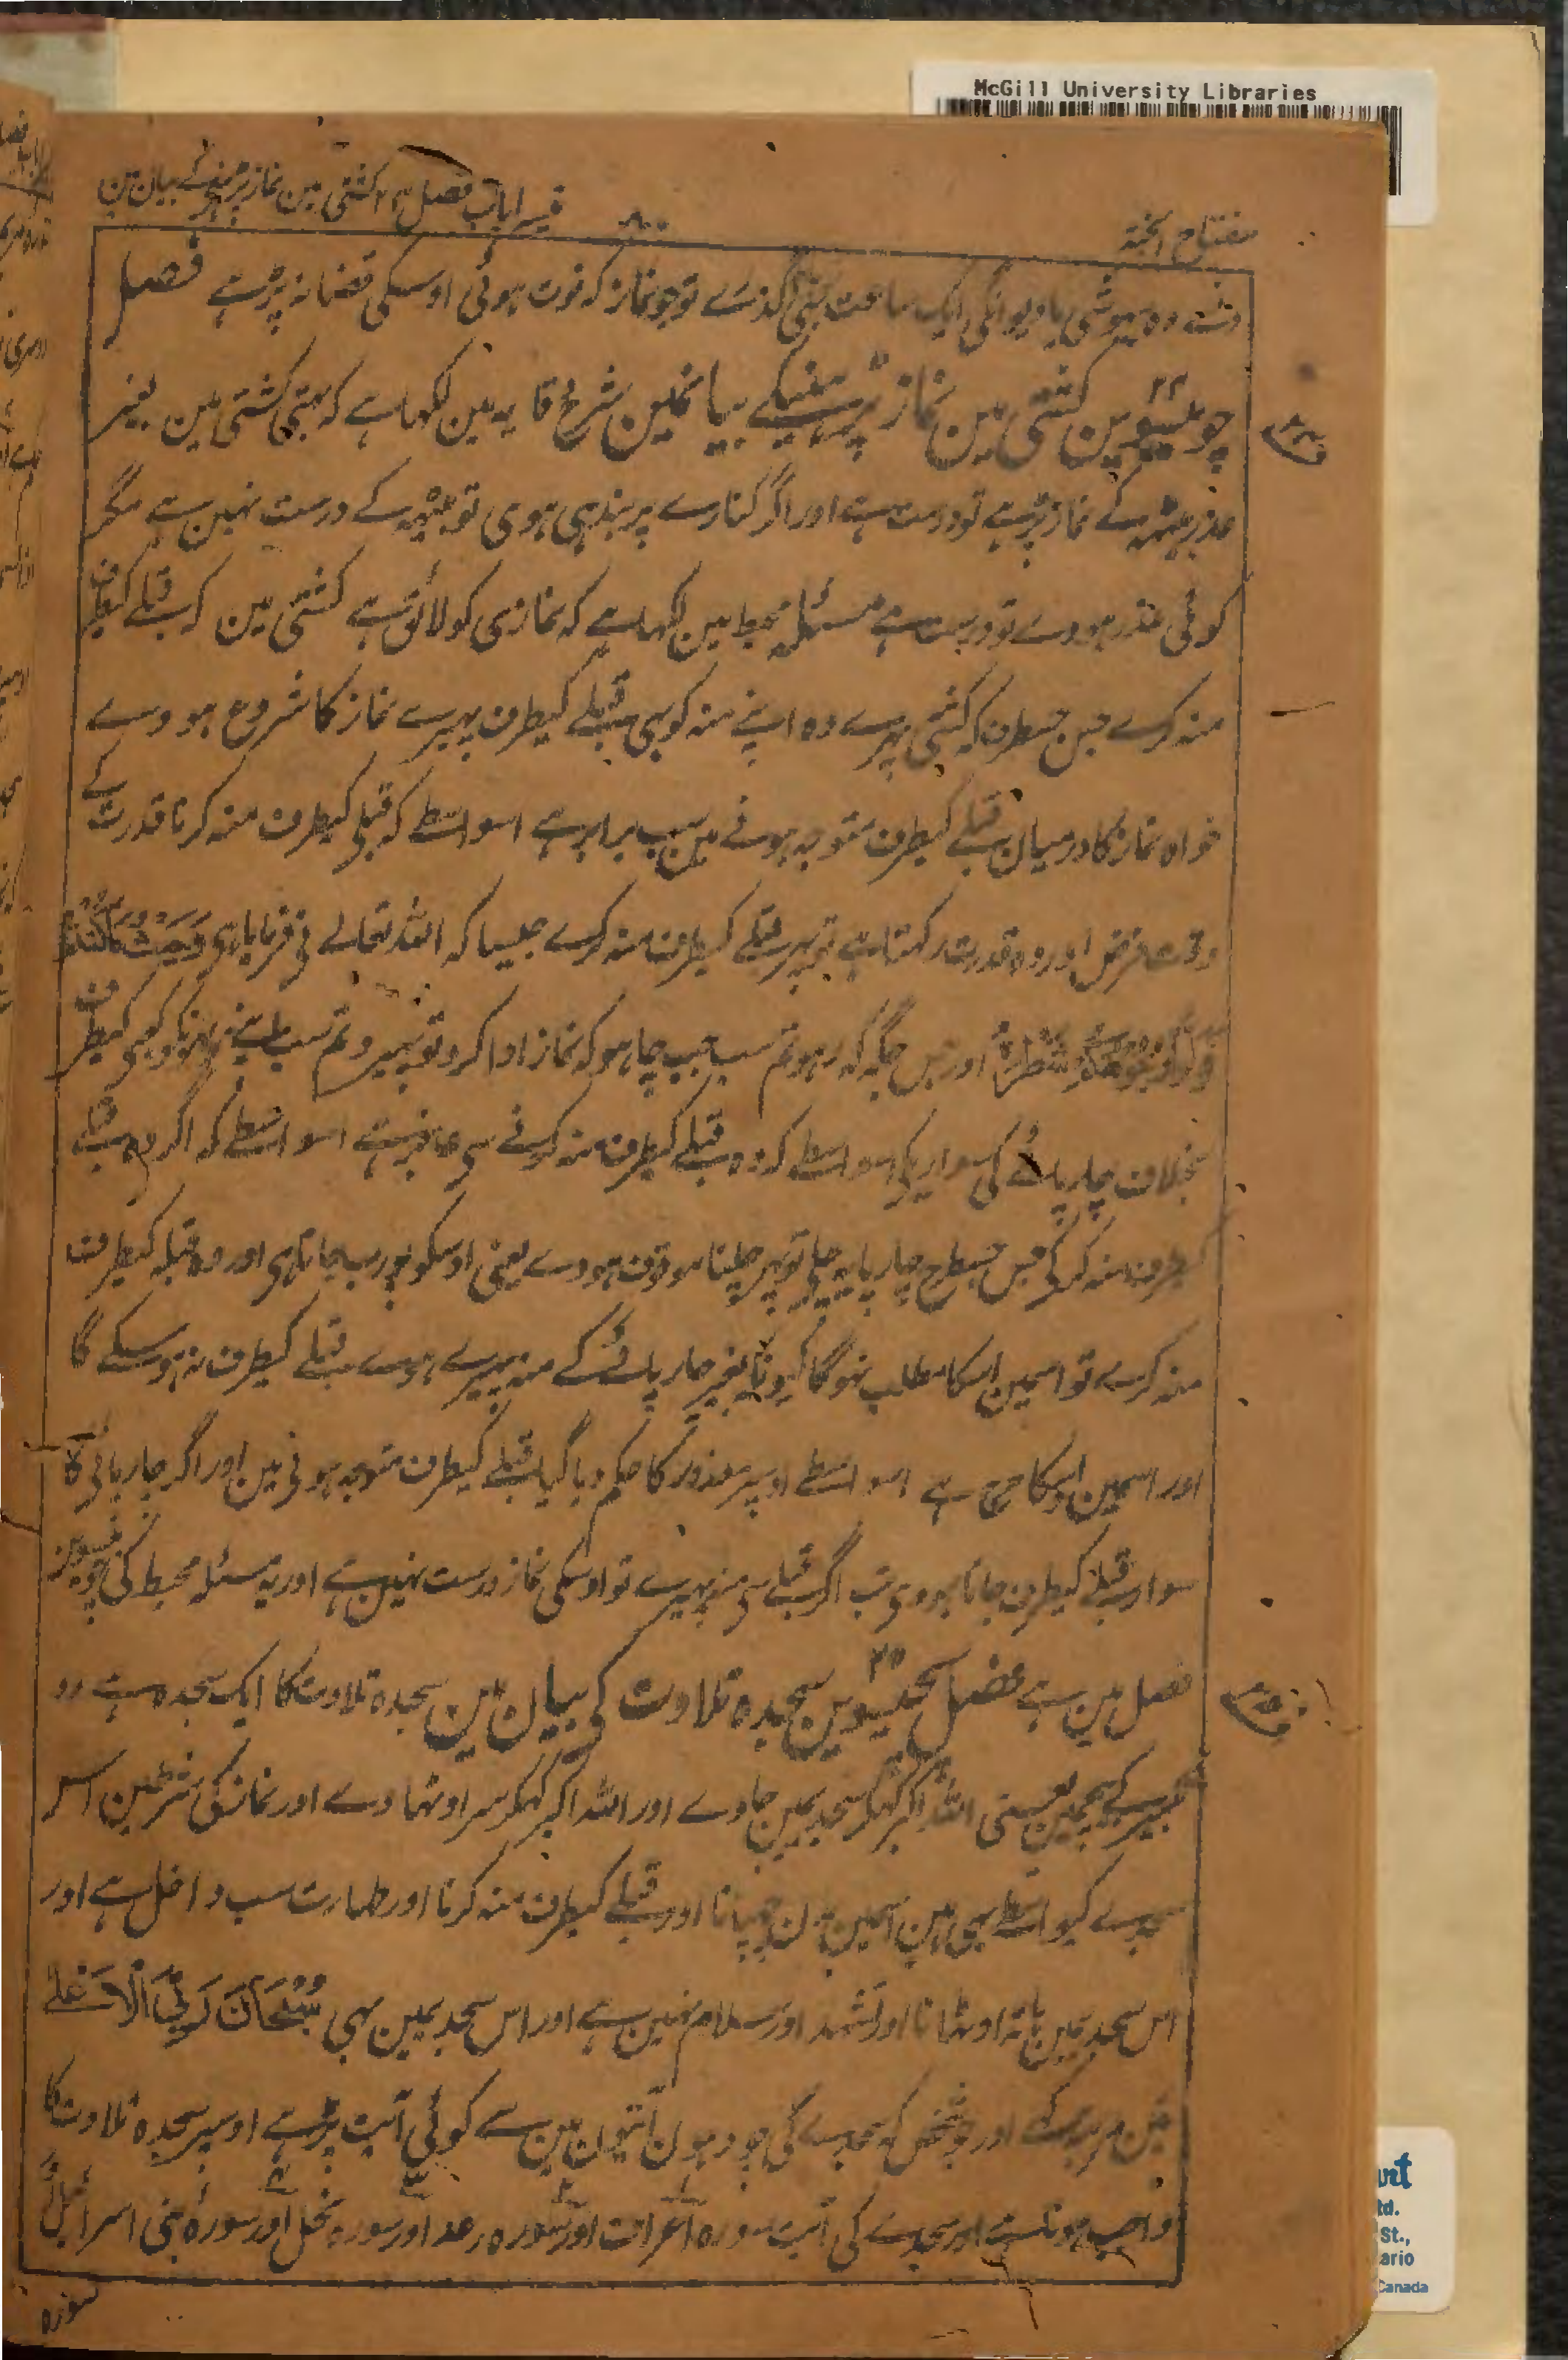 McGill University Libraries
مفتاح الجنۃ
۸۰
تیسرا باب فصل ۲۴ کشتی مین نماز پڑہنے کے بیان مین
وہ بیہوشی یا دیوانگی ایک ساعت بہی گذرے تو جو نماز کہ فوت ہوئی اوسکی قضا نہ پڑہے فصل
چوبیسوین ۲۴ کشتی مین نماز پڑہنیکے بیانمین شرح وقایہ مین لکہا ہے کہ بہتی کشتی مین بغیر
عذر بیٹہہ کے نماز پڑہے تو درست ہے اور اگر کنارے پر بندہی ہووی تو بیٹہہ کے درست نہین ہے مگر
کوئی عذر ہووے تو درست ہے مسئلہ محیط مین لکہا ہے کہ نمازی کو لائق ہے کشتی مین کہ قبلے کیطرف
منہ کرے جس جسطرف کہ کشتی پہرے وہ اپنے منہ کو بہی قبلے کیطرف پہیرے نماز کا شروع ہووے
خواہ نماز کا درمیان قبلے کیطرف متوجہ ہونے مین سب برابر ہے اسواسطے کہ قبلے کیطرف منہ کرنا قدرت کے
وقت فرض اور وہ قدرت رکہتا ہے تو پہر قبلے کیطرف منہ کرے جیسا کہ اللہ تعالے نی فرمایا ہی وَحَیْثُ مَا کُنْتُمْ
فَوَلُّوْا وُجُوْهَکُمْ شَطْرَهٗ اور جس جگہ کہ رہو تم سب جب چاہو کہ نماز ادا کرو تو پہیرو تم سب اپنے مونہونکو اوسی کیطرف
بخلاف چارپائے کی سواریکی اسواسطے کہ وہ قبلے کیطرف منہ کرنے سی عاجز ہے اسواسطے کہ اگر وہ قبلے
کیطرف منہ کرکی جس جسطرح چارپایہ چلے تو پہر چلنا موقوف ہووے یعنی اوسکو پورب جانا ہی اور وہ قبلہ کیطرف
منہ کرے تو اسمین اسکا مطلب نہوگا کیونکہ بغیر چارپائے کے منہ پہیرے ہوے قبلے کیطرف نہ ہو سکے گا
اور اسمین اوسکا حرج ہے اسواسطے اوسپر معذور کا حکم دیا گیا قبلے کیطرف متوجہ ہونی مین اور اگر چارپائی کا
سوار قبلے کیطرف جاتا ہووی تب اگر قبلے سی منہ پہیرے تو اوسکی نماز درست نہین ہے اور یہ مسئلہ محیط کی چوبیسوین
فصل مین ہے فصل پچیسوین ۲۵ سجدہ تلاوت کی بیان مین سجدہ تلاوت کا ایک سجدہ ہے دو
تکبیر کے بیچمین یعنی اللہ اکبر کہکر سجدیمین جاوے اور اللہ اکبر کہکر سر اوٹہاوے اور نماز کی شرطین اس
سجدے کیواسطے بہی ہین اسمین بدن چہپانا اور قبلے کیطرف منہ کرنا اور طہارت سب داخل ہے اور
اس سجدیمین ہاتہ اوٹہانا اور تشہد اور سلام نہین ہے اور اس سجدیمین بہی سُبْحَانَ رَبِّیَ الْاَعْلٰے
تین مرتبہ کہے اور جو شخص کہ سجدے کی چودہون آیتون مین سے کوئی آیت پڑہے اوسپر سجدہ تلاوت کا
واجب ہوتا ہے اور سجدے کی آیت سورہ اعراف اور سورہ رعد اور سورہ نحل اور سورۂ بنی اسرائیل
سورہ
td.
St.,
ario
Canada